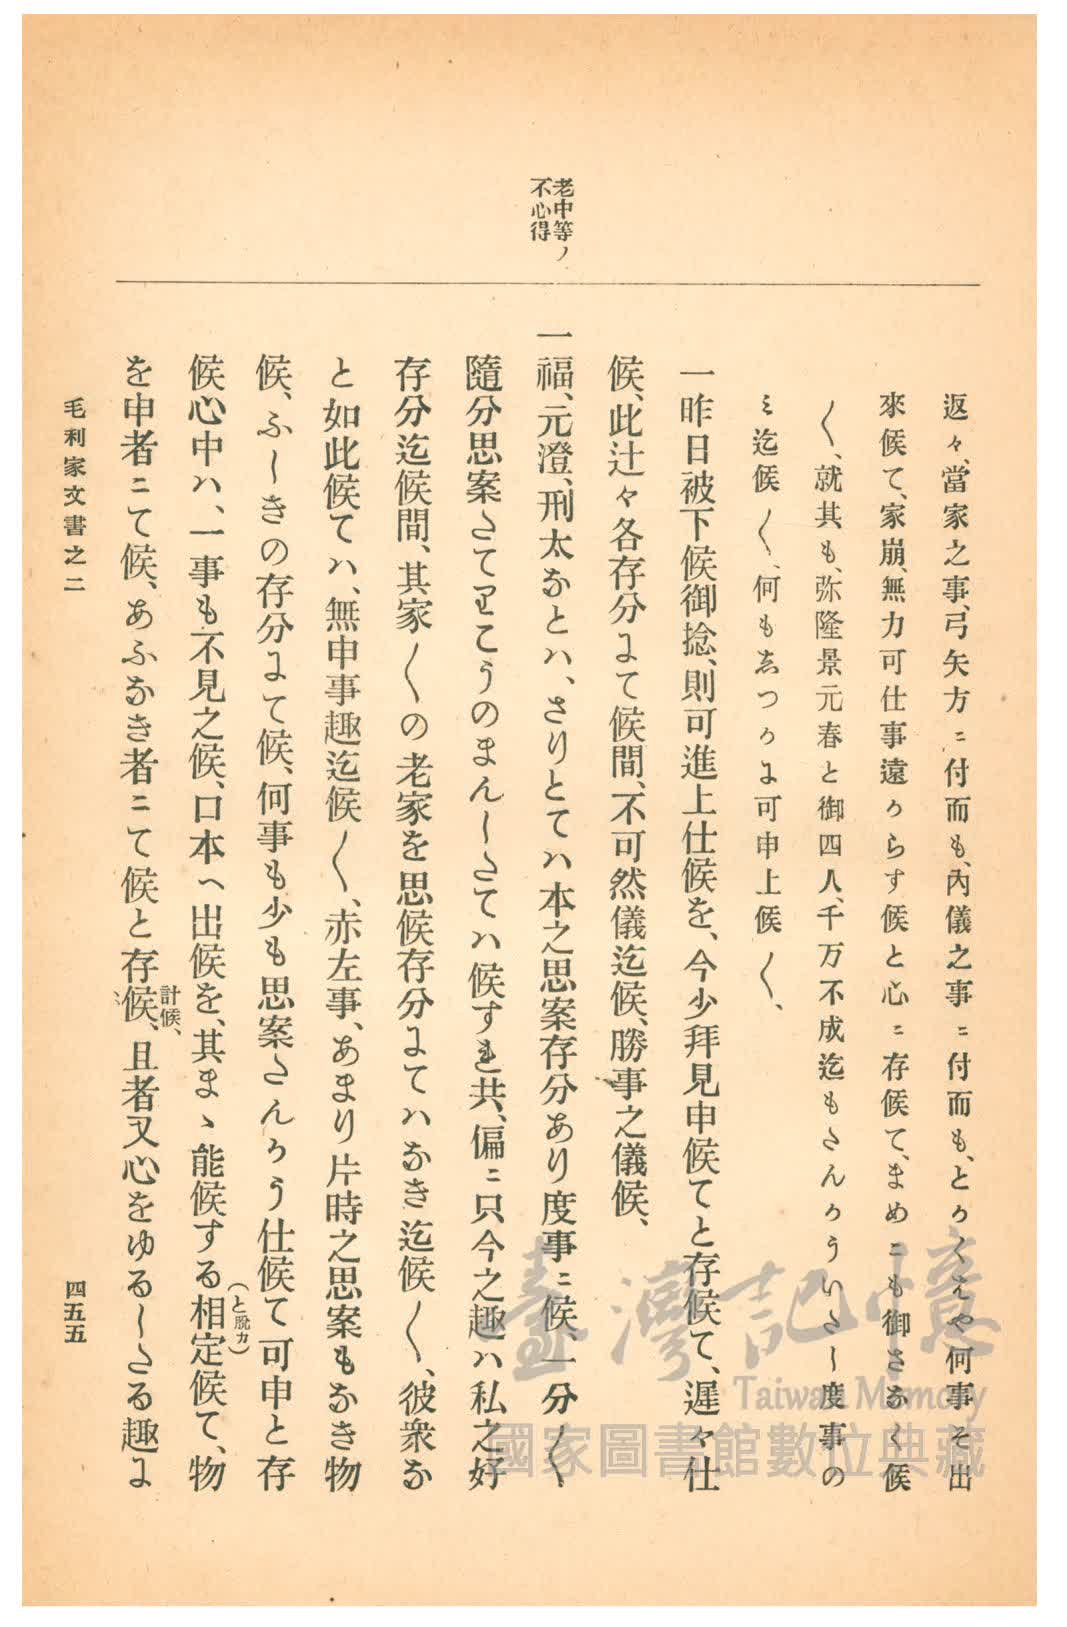 老中等ノ
不心得
返々、當家之事、弓矢方ニ付而も、內儀之事ニ付而も、とかくはや何事そ出
來候て、家崩、無力可仕事遠からす候と心ニ存候て、まめニも御さなく候
〱、就其も、弥隆景元春と御四人、千万不成迄もたんかういたし度事の
ミ迄候〱、何もしつかに可申上候〱、
一昨日被下候御捻、則可進上仕候を、今少拜見申候てと存候て、遲々仕
候、此辻々各存分にて候間、不可然儀迄候、勝事之儀候、
一福、元澄、刑太なとハ、さりとてハ本之思案存分あり度事ニ候、一分〱
隨分思案たてりこうのまんしたてハ候すれ共、偏ニ只今之趣ハ私之好
存分迄候間、其家〱の老家を思候存分にてハなき迄候〱、彼衆な
と如此候てハ、無申事趣迄候〱、赤左事、あまり片時之思案もなき物
候、ふしきの存分にて候、何事も少も思案たんかう仕候て可申と存
候心中ハ、一事も不見之候、口本ヘ出候を、其まゝ能候する相定候て、物
(と脫カ)
を申者ニて候、あふなき者ニて候と存候、且者又心をゆるしたる趣に
計候、
毛利家文書之二
四五五
臺灣記憶
Taiwan Memory
國家圖書館數位典藏